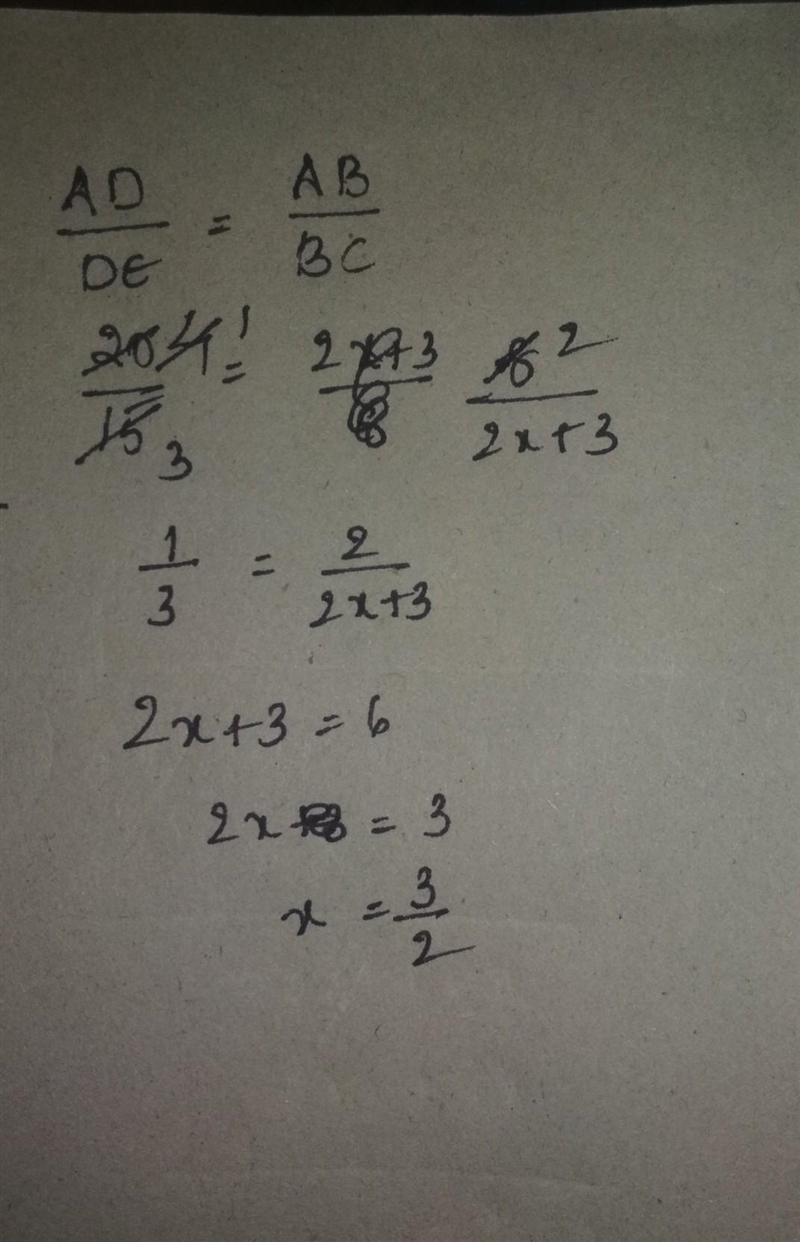 AD/DE = AB/BC
20 4 1/15 3 = 2x+3/8 8 2/2x+3
1/3 = 2/2x+3
2x+3 = 6
2x = 3
x = 3/2